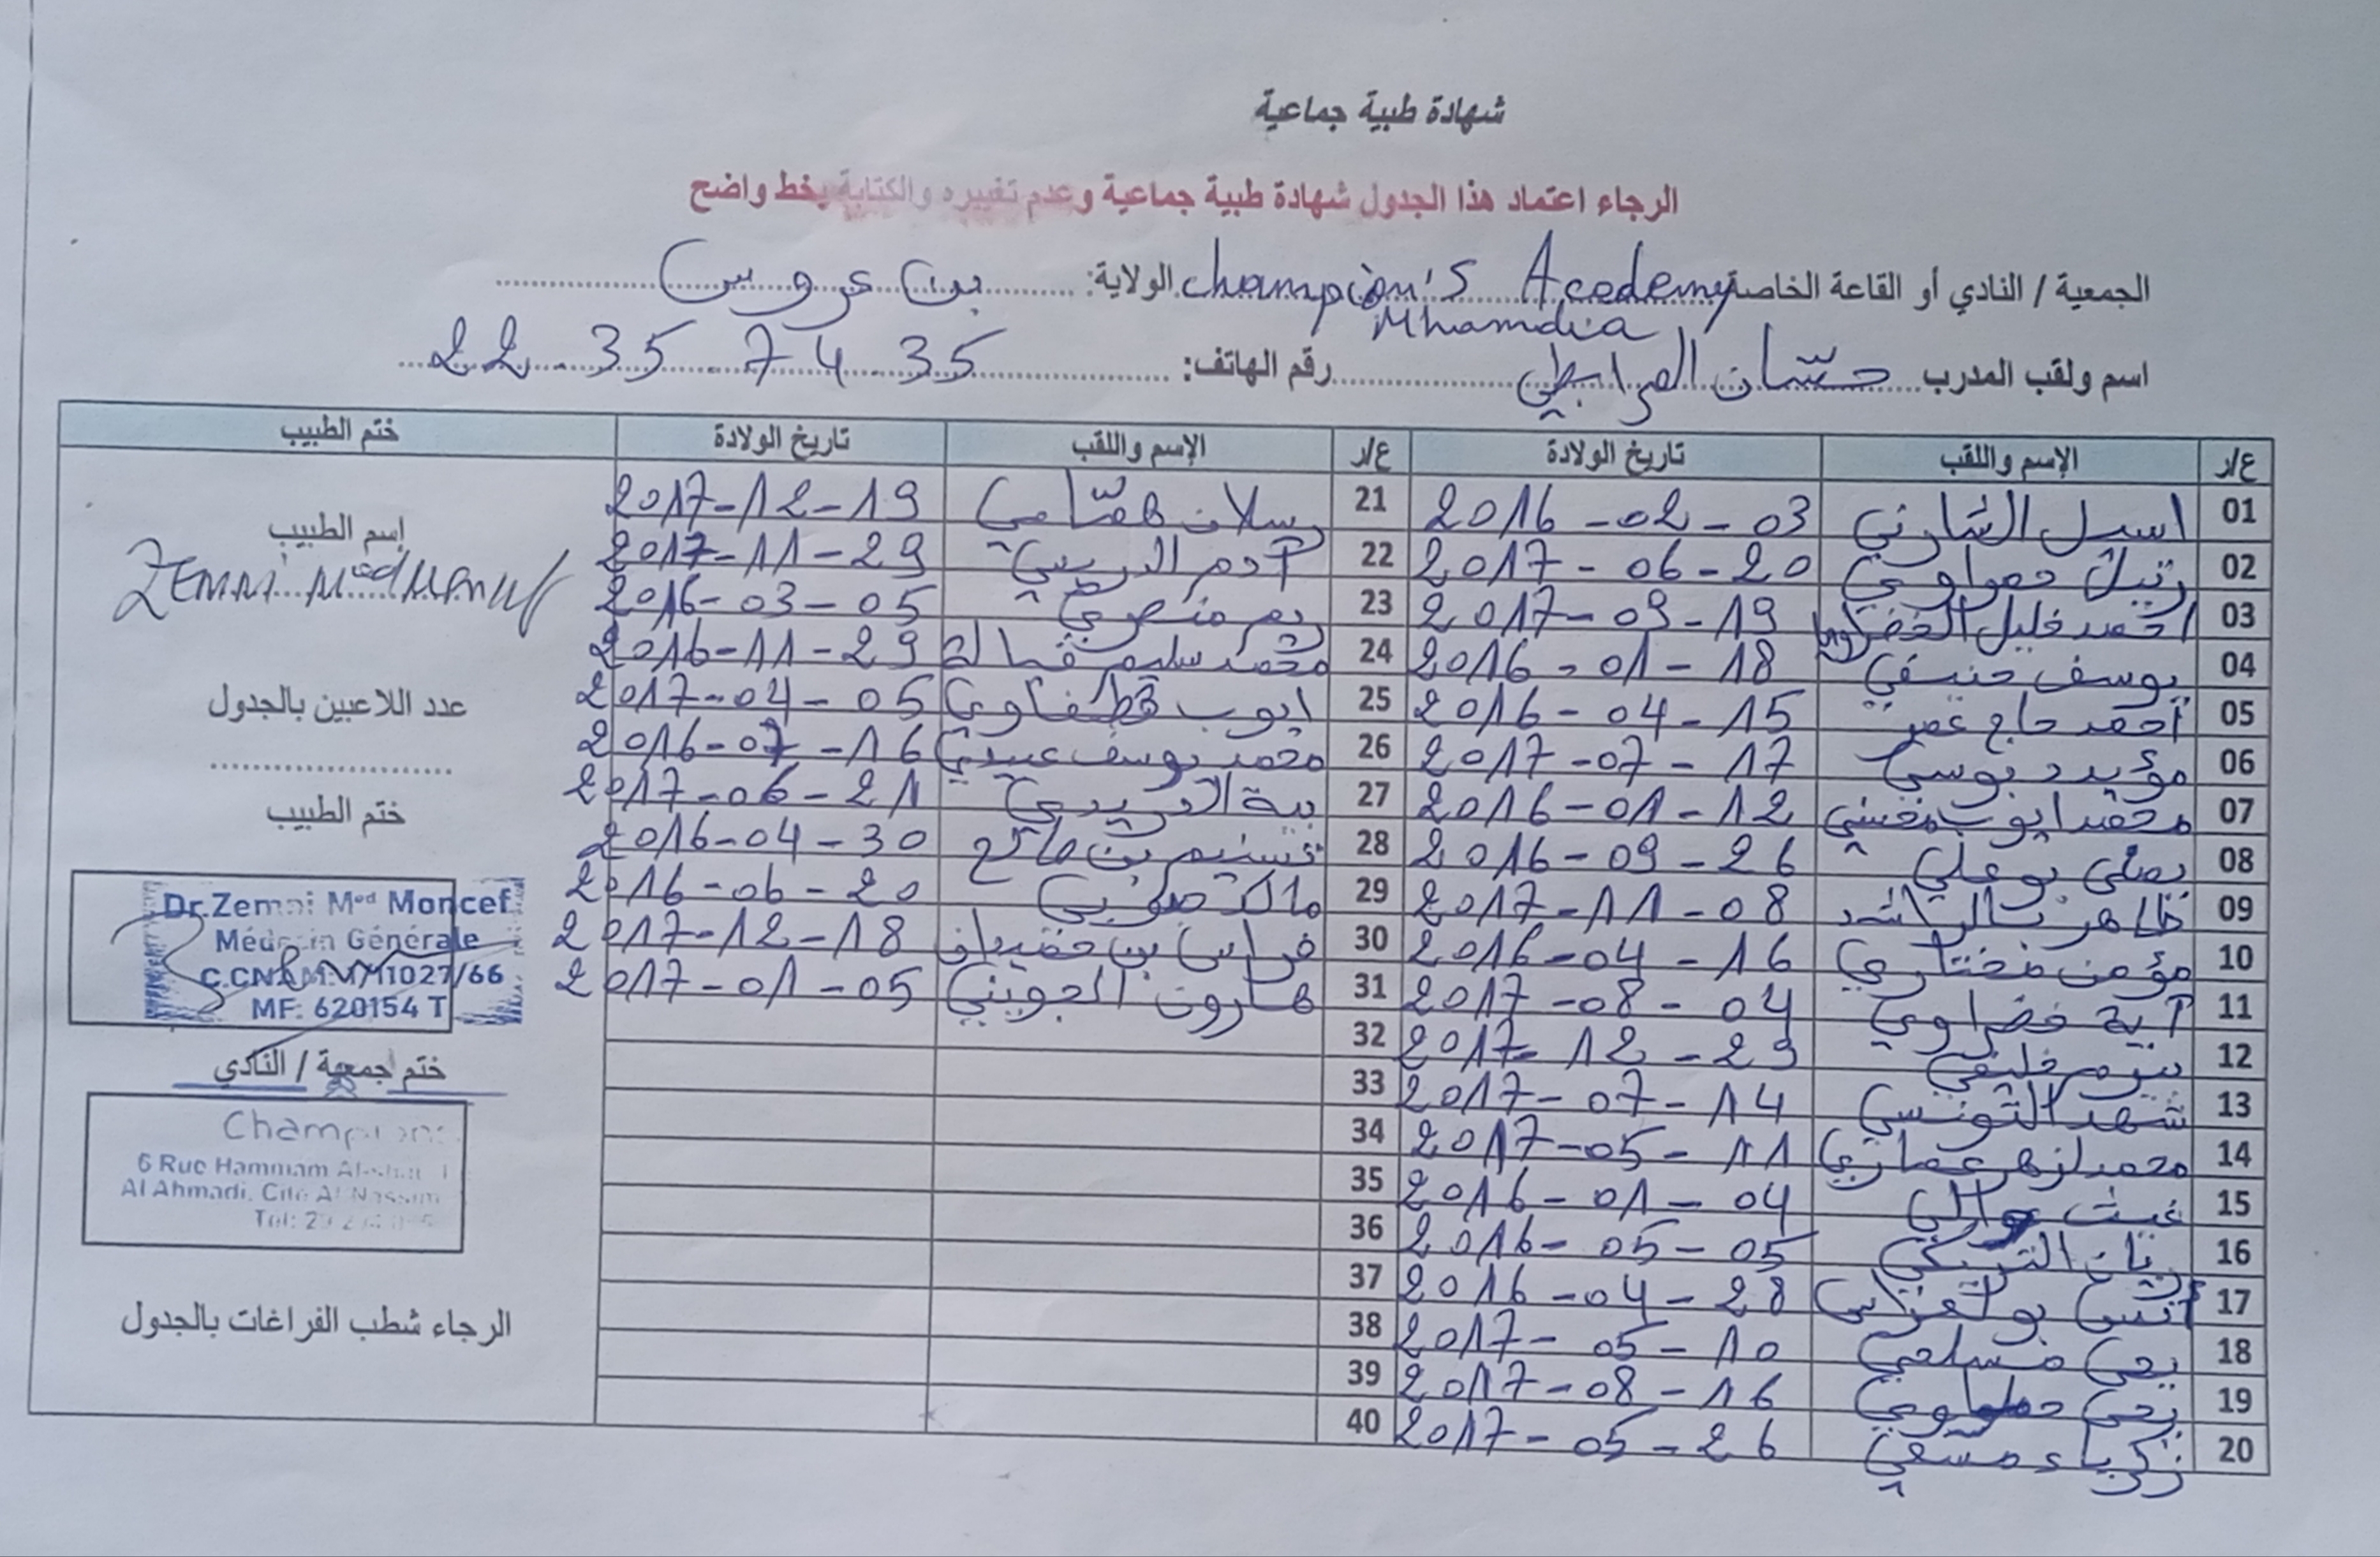 شهادة طبية جماعية
الرجاء اعتماد هذا الجدول شهادة طبية جماعية وعدم تغييره والكتابة بخط واضح
الجمعية / النادي أو القاعة الخاصة champion's Academy Mhamdia الولاية: بن عروس
اسم ولقب المدرب حسّان المرابطي رقم الهاتف: 22 35 74 35
ع/ر الإسم واللقب تاريخ الولادة ع/ر الإسم واللقب تاريخ الولادة ختم الطبيب
01 اسيل الشارني 2016-02-03 21 رسلان همّامي 2017-12-19
02 رتيل 2017-06-20 22 آدم الدريسي 2017-11-29
03 احمد خليل 2017-09-19 23 ريم منصري 2016-03-05
04 يوسف حنيفي 2016-01-18 24 محمد سليم 2016-11-29
05 أحمد حاج عمر 2016-04-15 25 ايوب 2017-04-05
06 مؤيد بوسي 2017-07-17 26 محمد يوسف عبيدي 2016-07-16
07 محمد ايوب 2016-01-12 27 بية الدريدي 2017-06-21
08 بوعلي 2016-09-26 28 تسنيم بن صالح 2016-04-30
09 2017-11-08 29 2016-06-20
10 مؤمن مختاري 2016-04-16 30 فراس بن حميدان 2017-12-18
11 آية خضراوي 2017-08-04 31 هارون الجويني 2017-01-05
12 بيرم خليفي 2017-12-29 32
13 شهد التونسي 2017-07-14 33
14 محمد لزهر عماري 2017-05-11 34
15 غيث 2016-01-04 35
16 ريان التريكي 2016-05-05 36
17 أنس 2016-04-28 37
18 يحي مسلمي 2017-05-10 38
19 يحي 2017-08-16 39
20 زكرياء مشفي 2017-05-26 40
إسم الطبيب
Zemni Med Moncef
عدد اللاعبين بالجدول
ختم الطبيب
Dr.Zemni Med Moncef
Médecin Générale
C.CNAM:1/11027/66
MF: 620154 T
ختم جمعية / النادي
Champions
6 Rue Hammam
Al Ahmadi, Cité Al Nassim
Tel: 29
الرجاء شطب الفراغات بالجدول